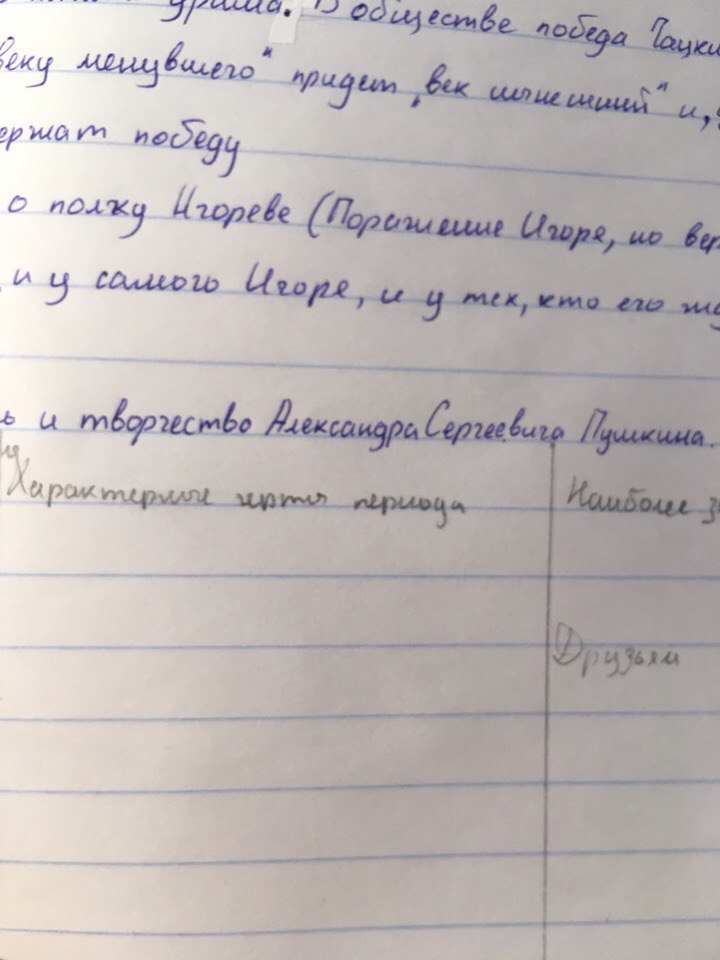 драма. В обществе победа Чацки
веку менувшего" придет „век нынешний" и,
ержат победу
о полку Игореве (Поражение Игоря, но вер
и у самого Игоря, и у тех, кто его жд
ь и творчество Александра Сергеевича Пушкина.
Характерные черты периода Наиболее з
Друзьям